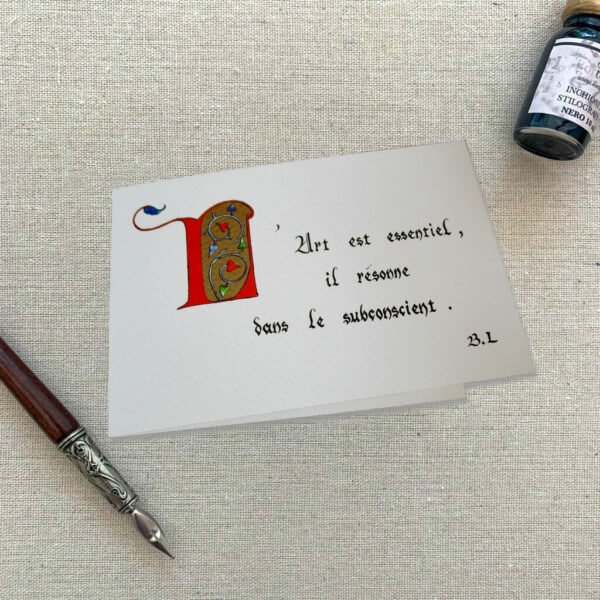 L'Art est essentiel,
il résonne
dans le subconscient.
B.L
INCHIOSTRO
NERO 10